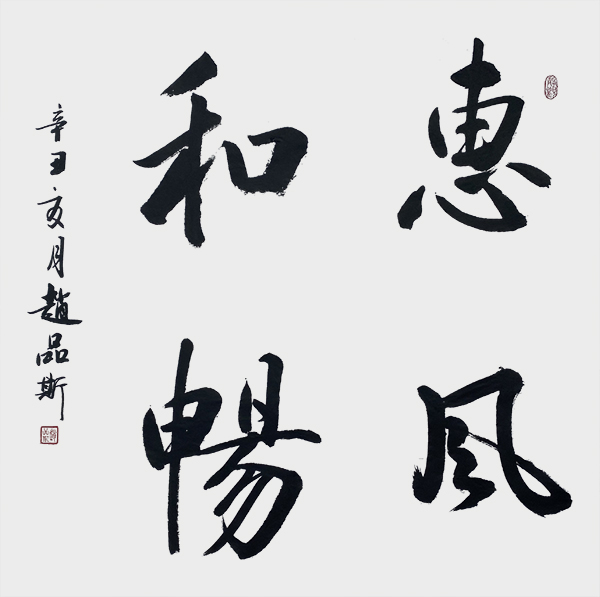 惠風
和暢
辛丑亥月趙品斯